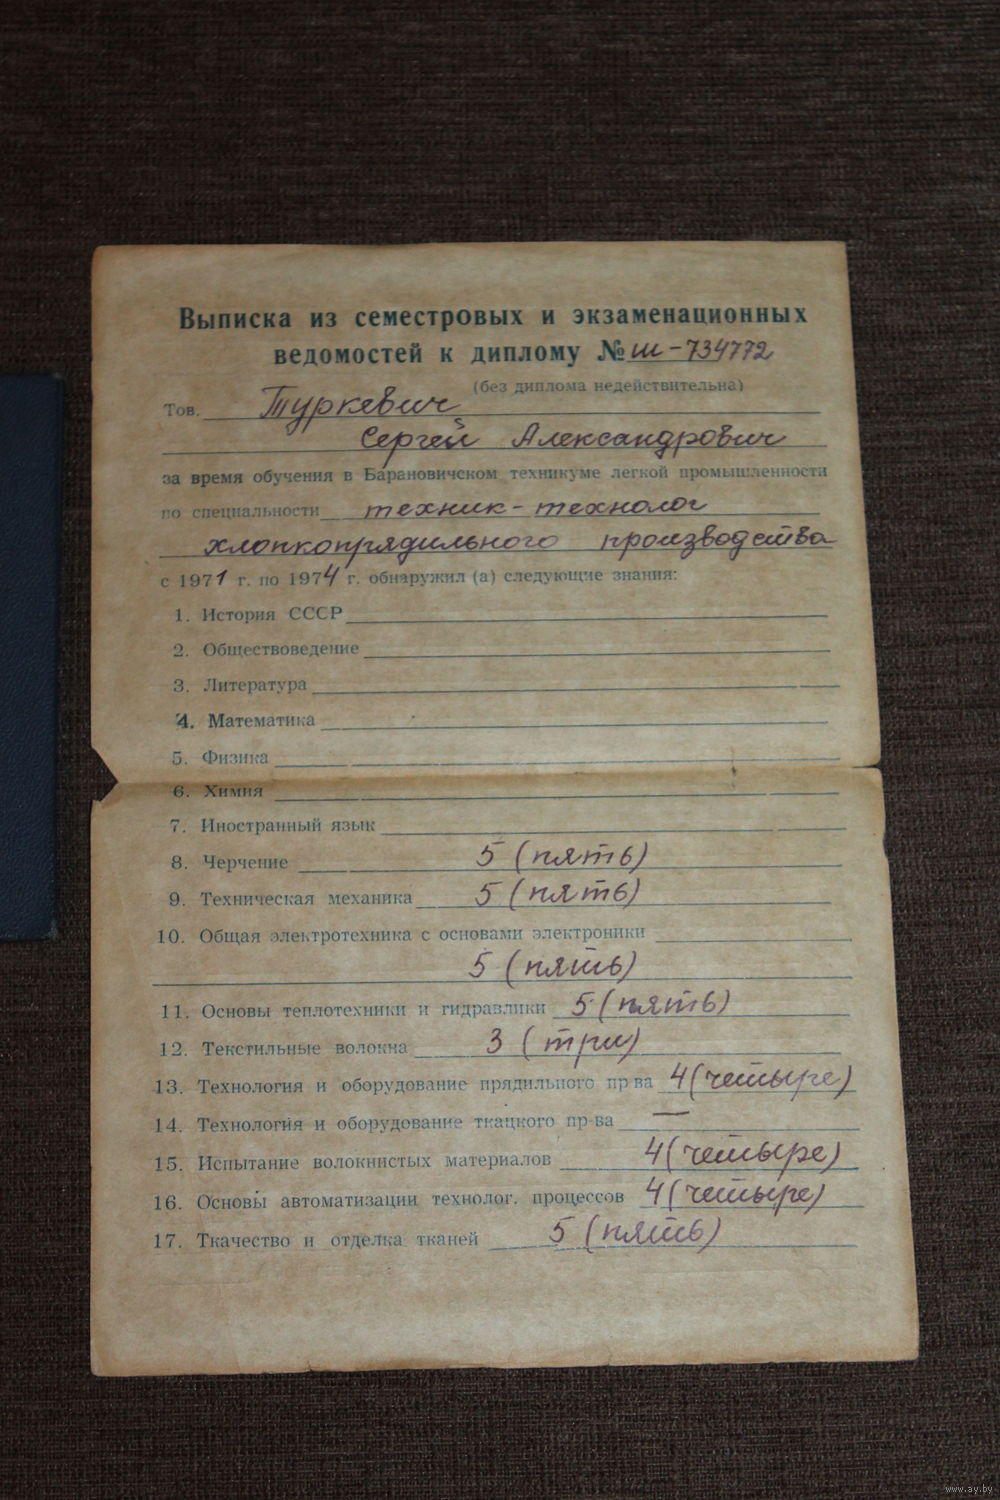 Выписка из семестровых и экзаменационных
ведомостей к диплому № Ш-734772
(без диплома недействительна)
Тов. Туркевич
Сергей Александрович
за время обучения в Барановичском техникуме легкой промышленности
по специальности техник-технолог
хлопкопрядильного производства
с 1971 г. по 1974 г. обнаружил (а) следующие знания:
1. История СССР
2. Обществоведение
3. Литература
4. Математика
5. Физика
6. Химия
7. Иностранный язык
8. Черчение 5 (пять)
9. Техническая механика 5 (пять)
10. Общая электротехника с основами электроники
5 (пять)
11. Основы теплотехники и гидравлики 5 (пять)
12. Текстильные волокна 3 (три)
13. Технология и оборудование прядильного пр-ва 4 (четыре)
14. Технология и оборудование ткацкого пр-ва —
15. Испытание волокнистых материалов 4 (четыре)
16. Основы автоматизации технолог. процессов 4 (четыре)
17. Ткачество и отделка тканей 5 (пять)
www.ay.by